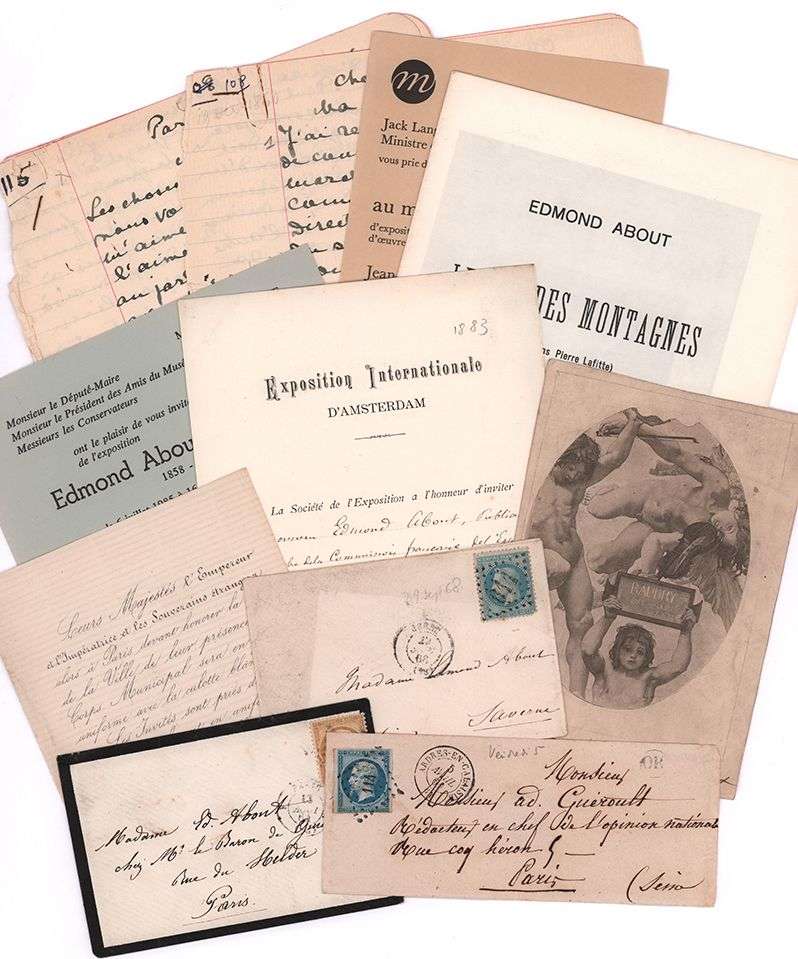 115
Par
Les choses
nous vo
m'aime
l'aime
au jar
108
ch
Ma
J'ai re
de cou
mard
com
direct
m
Jack Lang
Ministre
vous prie d
au m
d'exposit
d'œuvre
Jean
EDMOND ABOUT
L
DES MONTAGNES
ns Pierre Lafitte)
M
Monsieur le Député-Maire
Monsieur le Président des Amis du Musé
Messieurs les Conservateurs
ont le plaisir de vous invite
de l'exposition
Edmond Abou
1858 -
juillet 1985 à 1
1883
Exposition Internationale
D'AMSTERDAM
La Société de l'Exposition a l'honneur d'inviter
Edmond About, Public
de la Commission française de l'Ex
BAUDRY
Leurs Majestés l'Empereur
et l'Impératrice et les Souverains étrangers
alors à Paris devant honorer la
de la Ville de leur présence
Corps Municipal sera en
uniforme avec la culotte blan
Les Invités sont priés d
en unifo
29 Sept 68
29
68
Madame Edmond About
Saverne
Madame Ed. About
chez Mr le Baron de Gui
Rue du Helder
Paris.
ARDRES-EN-CALAISIS
Vendredi 5
OR
Monsieur
Monsieur ad. Guéroult
Rédacteur en chef de l'opinion nationale
Rue coq héron 5
Paris
(Seine